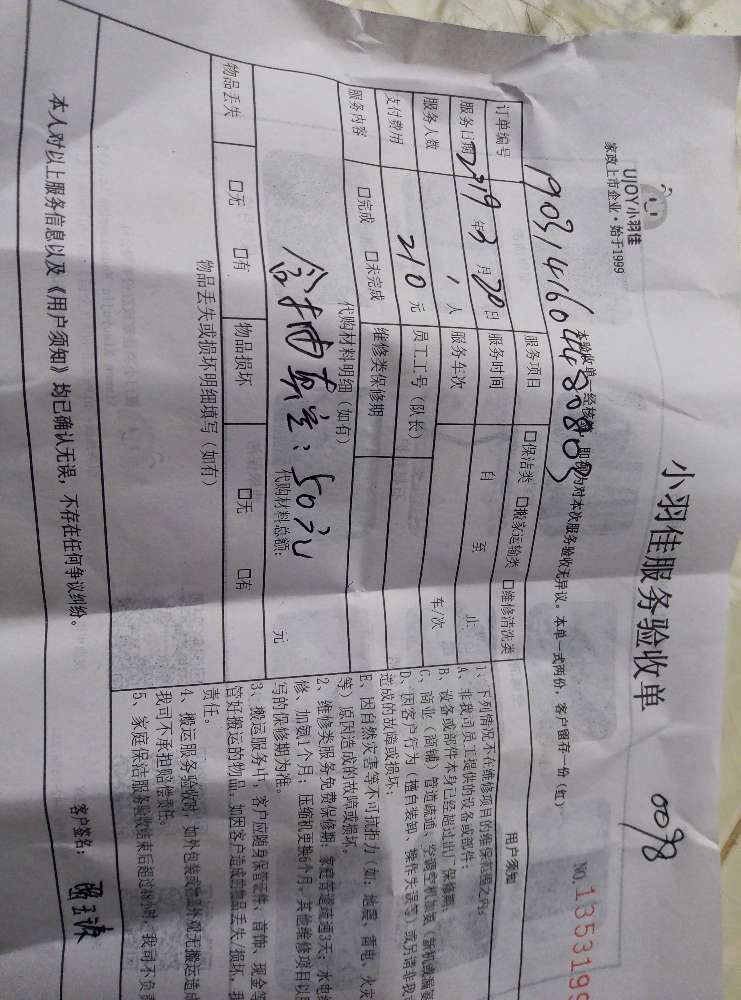 UJOY小羽佳
家政上市企业·始于1999
小羽佳服务验收单
0098
NO.1353199
本验收单一经核签，即视为对本次服务验收无异议。本单一式两份，客户留存一份（红）
订单编号 1903141604480803
服务项目 □保洁类 □搬家运输类 □维修清洗类
服务日期 2019年3月20日 服务时间 自 至 止
服务人数 1人 服务车次 车/次
支付费用 210元 员工工号（队长）
服务内容 □完成 □未完成 维修类保修期
代购材料明细（如有）
含打肉
：50元
代购材料总额： 元
物品丢失 □无 □有 物品损坏 □无 □有
物品丢失或损坏明细填写（如有）
用户须知
1、下列情况不在维修项目的维保范围之内：
A、非我司员工提供的设备或部件；
B、设备或部件本身已经超过出厂保修期；
C、商业（商铺）管道疏通、空调
D、因客户行为（擅自装卸、操作失误等）或另请非我
造成的故障或损坏；
E、因自然灾害等不可抗拒力（如：地震、雷电、火灾
等）原因造成的故障或损坏。
2、维修类服务免费保修期：家庭管道疏通3天；水电维
修、加氨1个月；压缩机更换6个月。其他维修项目以
写的保修期为准。
3、搬运服务中，客户应随身保管证件、首饰、现金等
管好搬运的物品，如因客户造成的物品丢失/损坏，我
责任。
4、搬运服务验收时，如外包装或 外观无搬运造成
我司不承担赔偿责任。
5、家庭保洁服务验收结束后超过48小时，我司不负责
本人对以上服务信息以及《用户须知》均已确认无误，不存在任何争议纠纷。
客户签名：